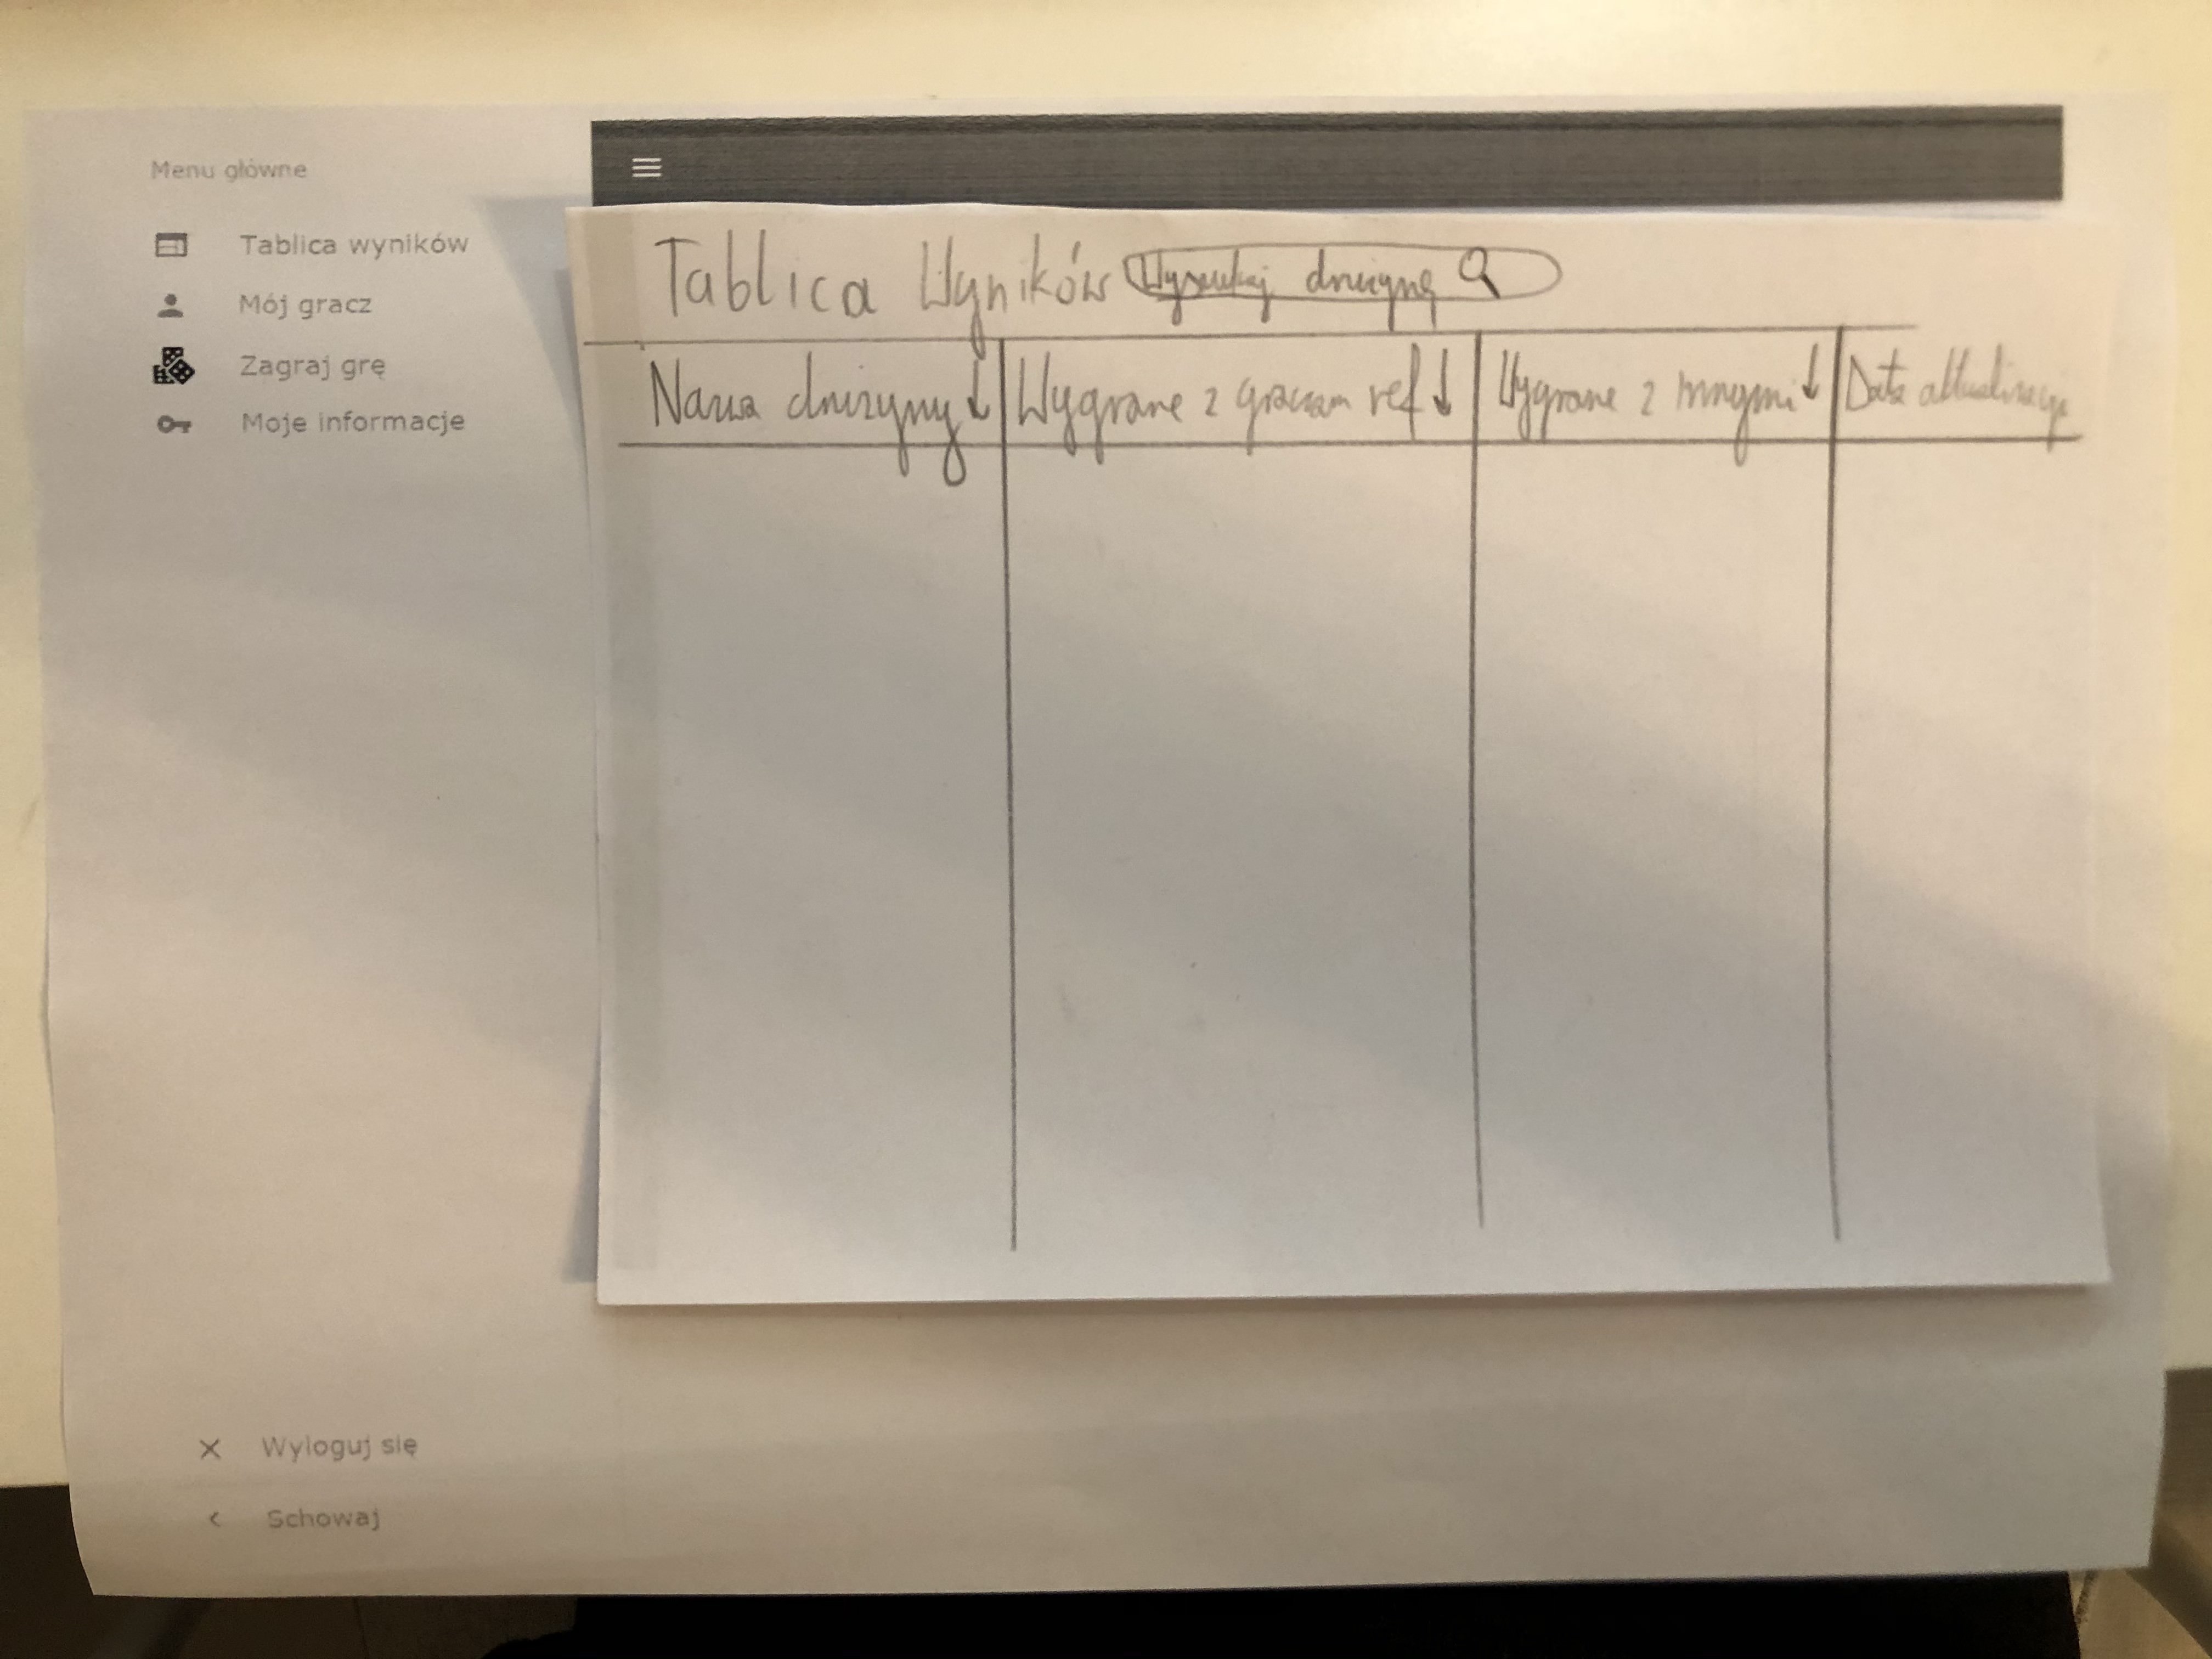 Menu główne
Tablica wyników
Mój gracz
Zagraj grę
Moje informacje
Wyloguj się
Schowaj
Tablica Wyników Wyszukaj drużynę
Nazwa drużyny↓ Wygrane z graczem ref↓ Wygrane z innymi↓ Data aktualizacji